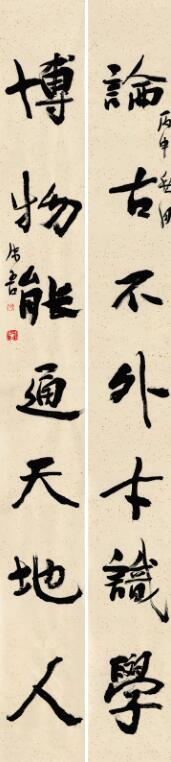 論古不外才識學
丙申
博物能通天地人